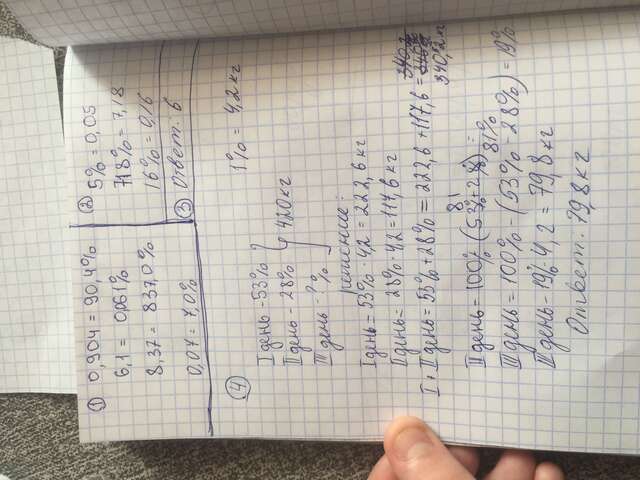 ① 0,904 = 90,4%
6,1 = 0,061%
8,37 = 837,0%
0,07 = 7,0%
② 5% = 0,05
718% = 7,18
16% = 0,16
③ Ответ: б
④
1% = 4,2 кг
I день - 53%
II день - 28%
420кг
III день - ? %
решение:
I день = 53% · 42 = 222,6 кг
II день = 28% · 42 = 117,6 кг
I + II день = 53% + 28% = 222,6 + 117,6 =
340,2 кг
III день = 100% (53% + 28%) =
81 81%
III день = 100% - (53% - 28%) = 19%
II день - 19% · 4,2 = 79,8 кг
Ответ: 79,8 кг